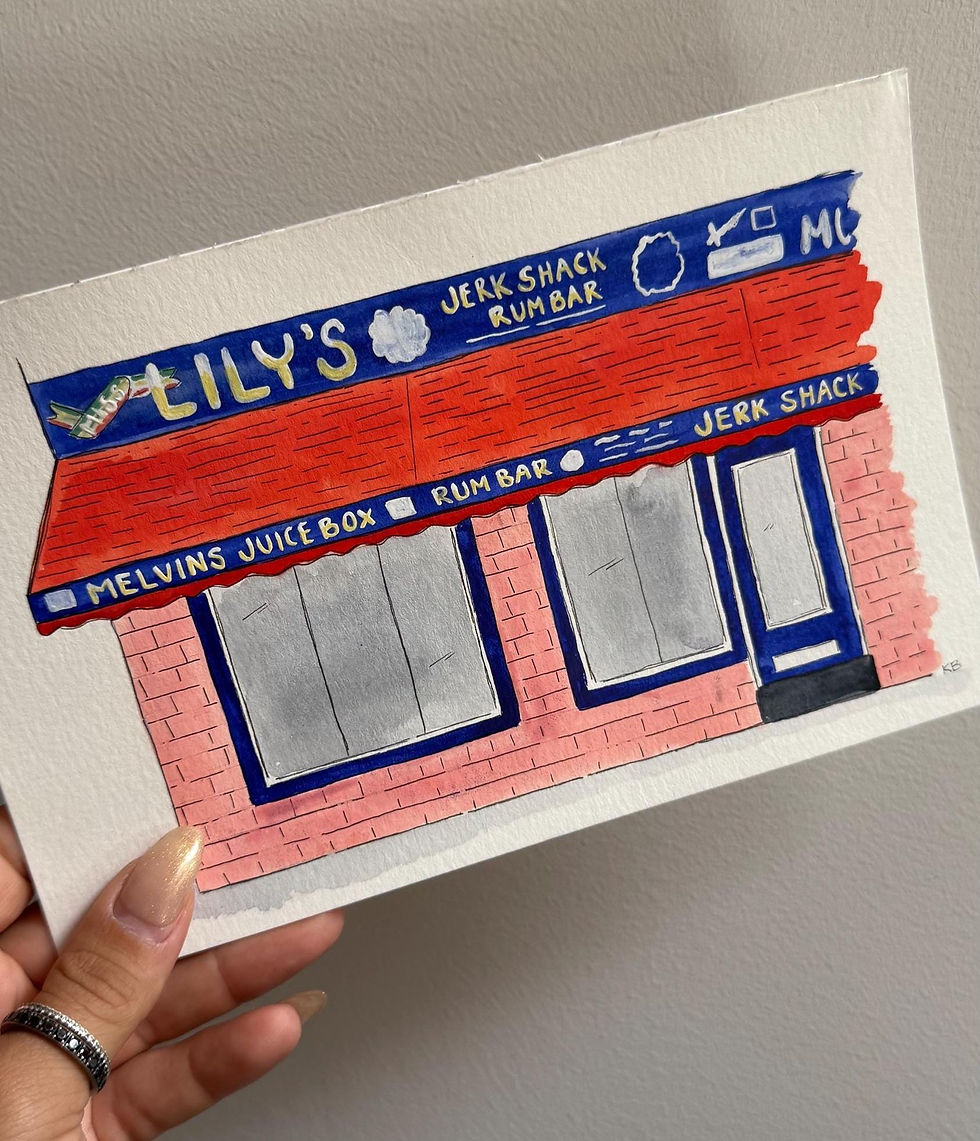 LILY'S
JERK SHACK
RUM BAR
MELVINS JUICE BOX
RUM BAR
JERK SHACK
KB